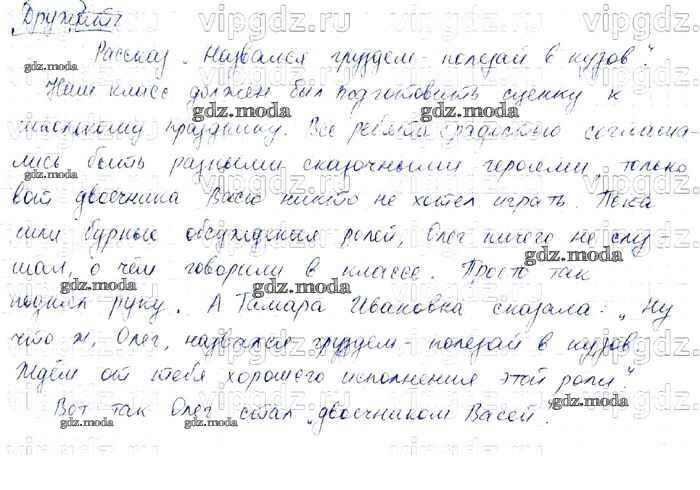 Дружить
Рассказ „Назвался груздем - полезай в кузов".
Наш класс должен был подготовить сценку к
школьному празднику. Все ребята радостно соглаша-
лись быть разными сказочными героями, только
вот двоечника Васю никто не хотел играть. Пока
шли бурные обсуждения ролей, Олег ничего не слу-
шал, о чём говорили в классе. Просто так
поднял руку. А Тамара Ивановна сказала: „Ну
что ж, Олег, назвался груздем - полезай в кузов.
Ждём от тебя хорошего исполнения этой роли!"
Вот так Олег стал „двоечником Васей".
vipgdz.ru
gdz.moda